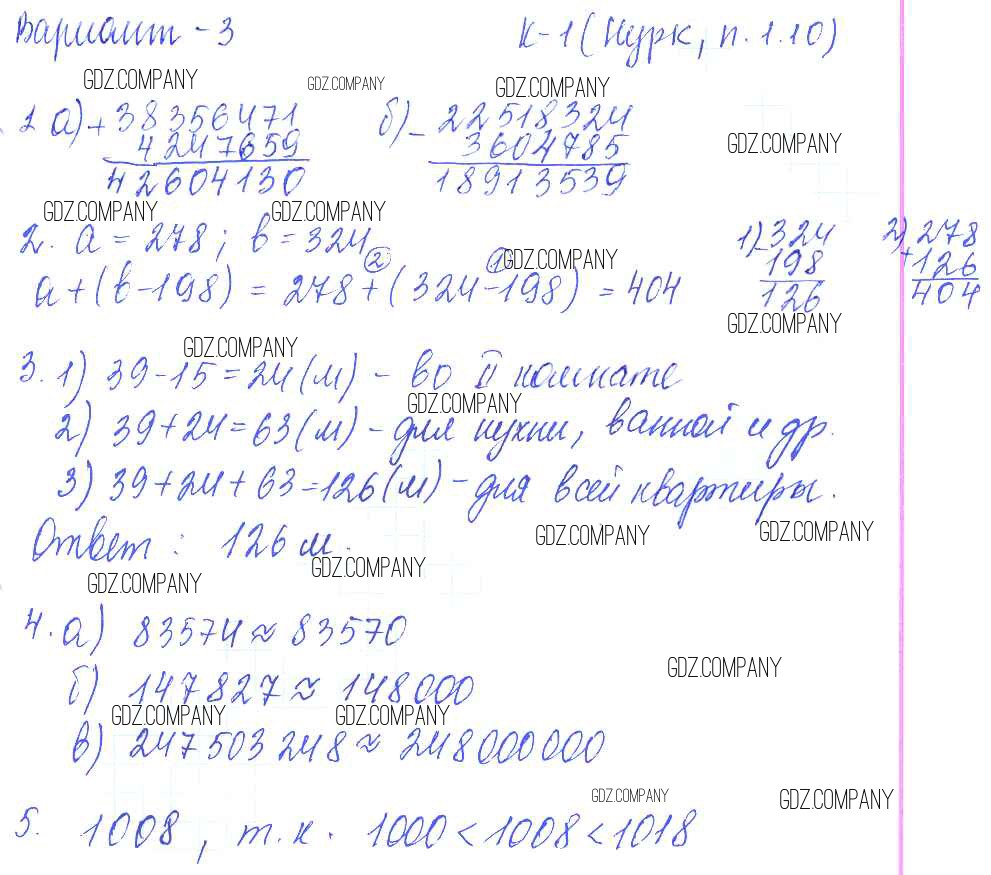 Вариант - 3 К-1 (Нурк, п. 1.10)
GDZ.COMPANY GDZ.COMPANY GDZ.COMPANY
1 а) + 38356471 б) - 22518324
4247659 3604785 GDZ.COMPANY
42604130 18913539
GDZ.COMPANY GDZ.COMPANY
2. а = 278 ; в = 324 1) - 324 2) + 278
2 1 GDZ.COMPANY 198 126
а + (в - 198) = 278 + (324 - 198) = 404 126 404
GDZ.COMPANY
GDZ.COMPANY
3. 1) 39 - 15 = 24 (м) - во II комнате
GDZ.COMPANY
2) 39 + 24 = 63 (м) - для кухни, ванной и др.
3) 39 + 24 + 63 = 126 (м) - для всей квартиры.
GDZ.COMPANY GDZ.COMPANY
Ответ : 126 м.
GDZ.COMPANY GDZ.COMPANY
4. а) 83574 ≈ 83570
GDZ.COMPANY
б) 147827 ≈ 148000
GDZ.COMPANY GDZ.COMPANY
в) 247503248 ≈ 248000000
GDZ.COMPANY GDZ.COMPANY
5. 1008 , т. к. 1000 < 1008 < 1018